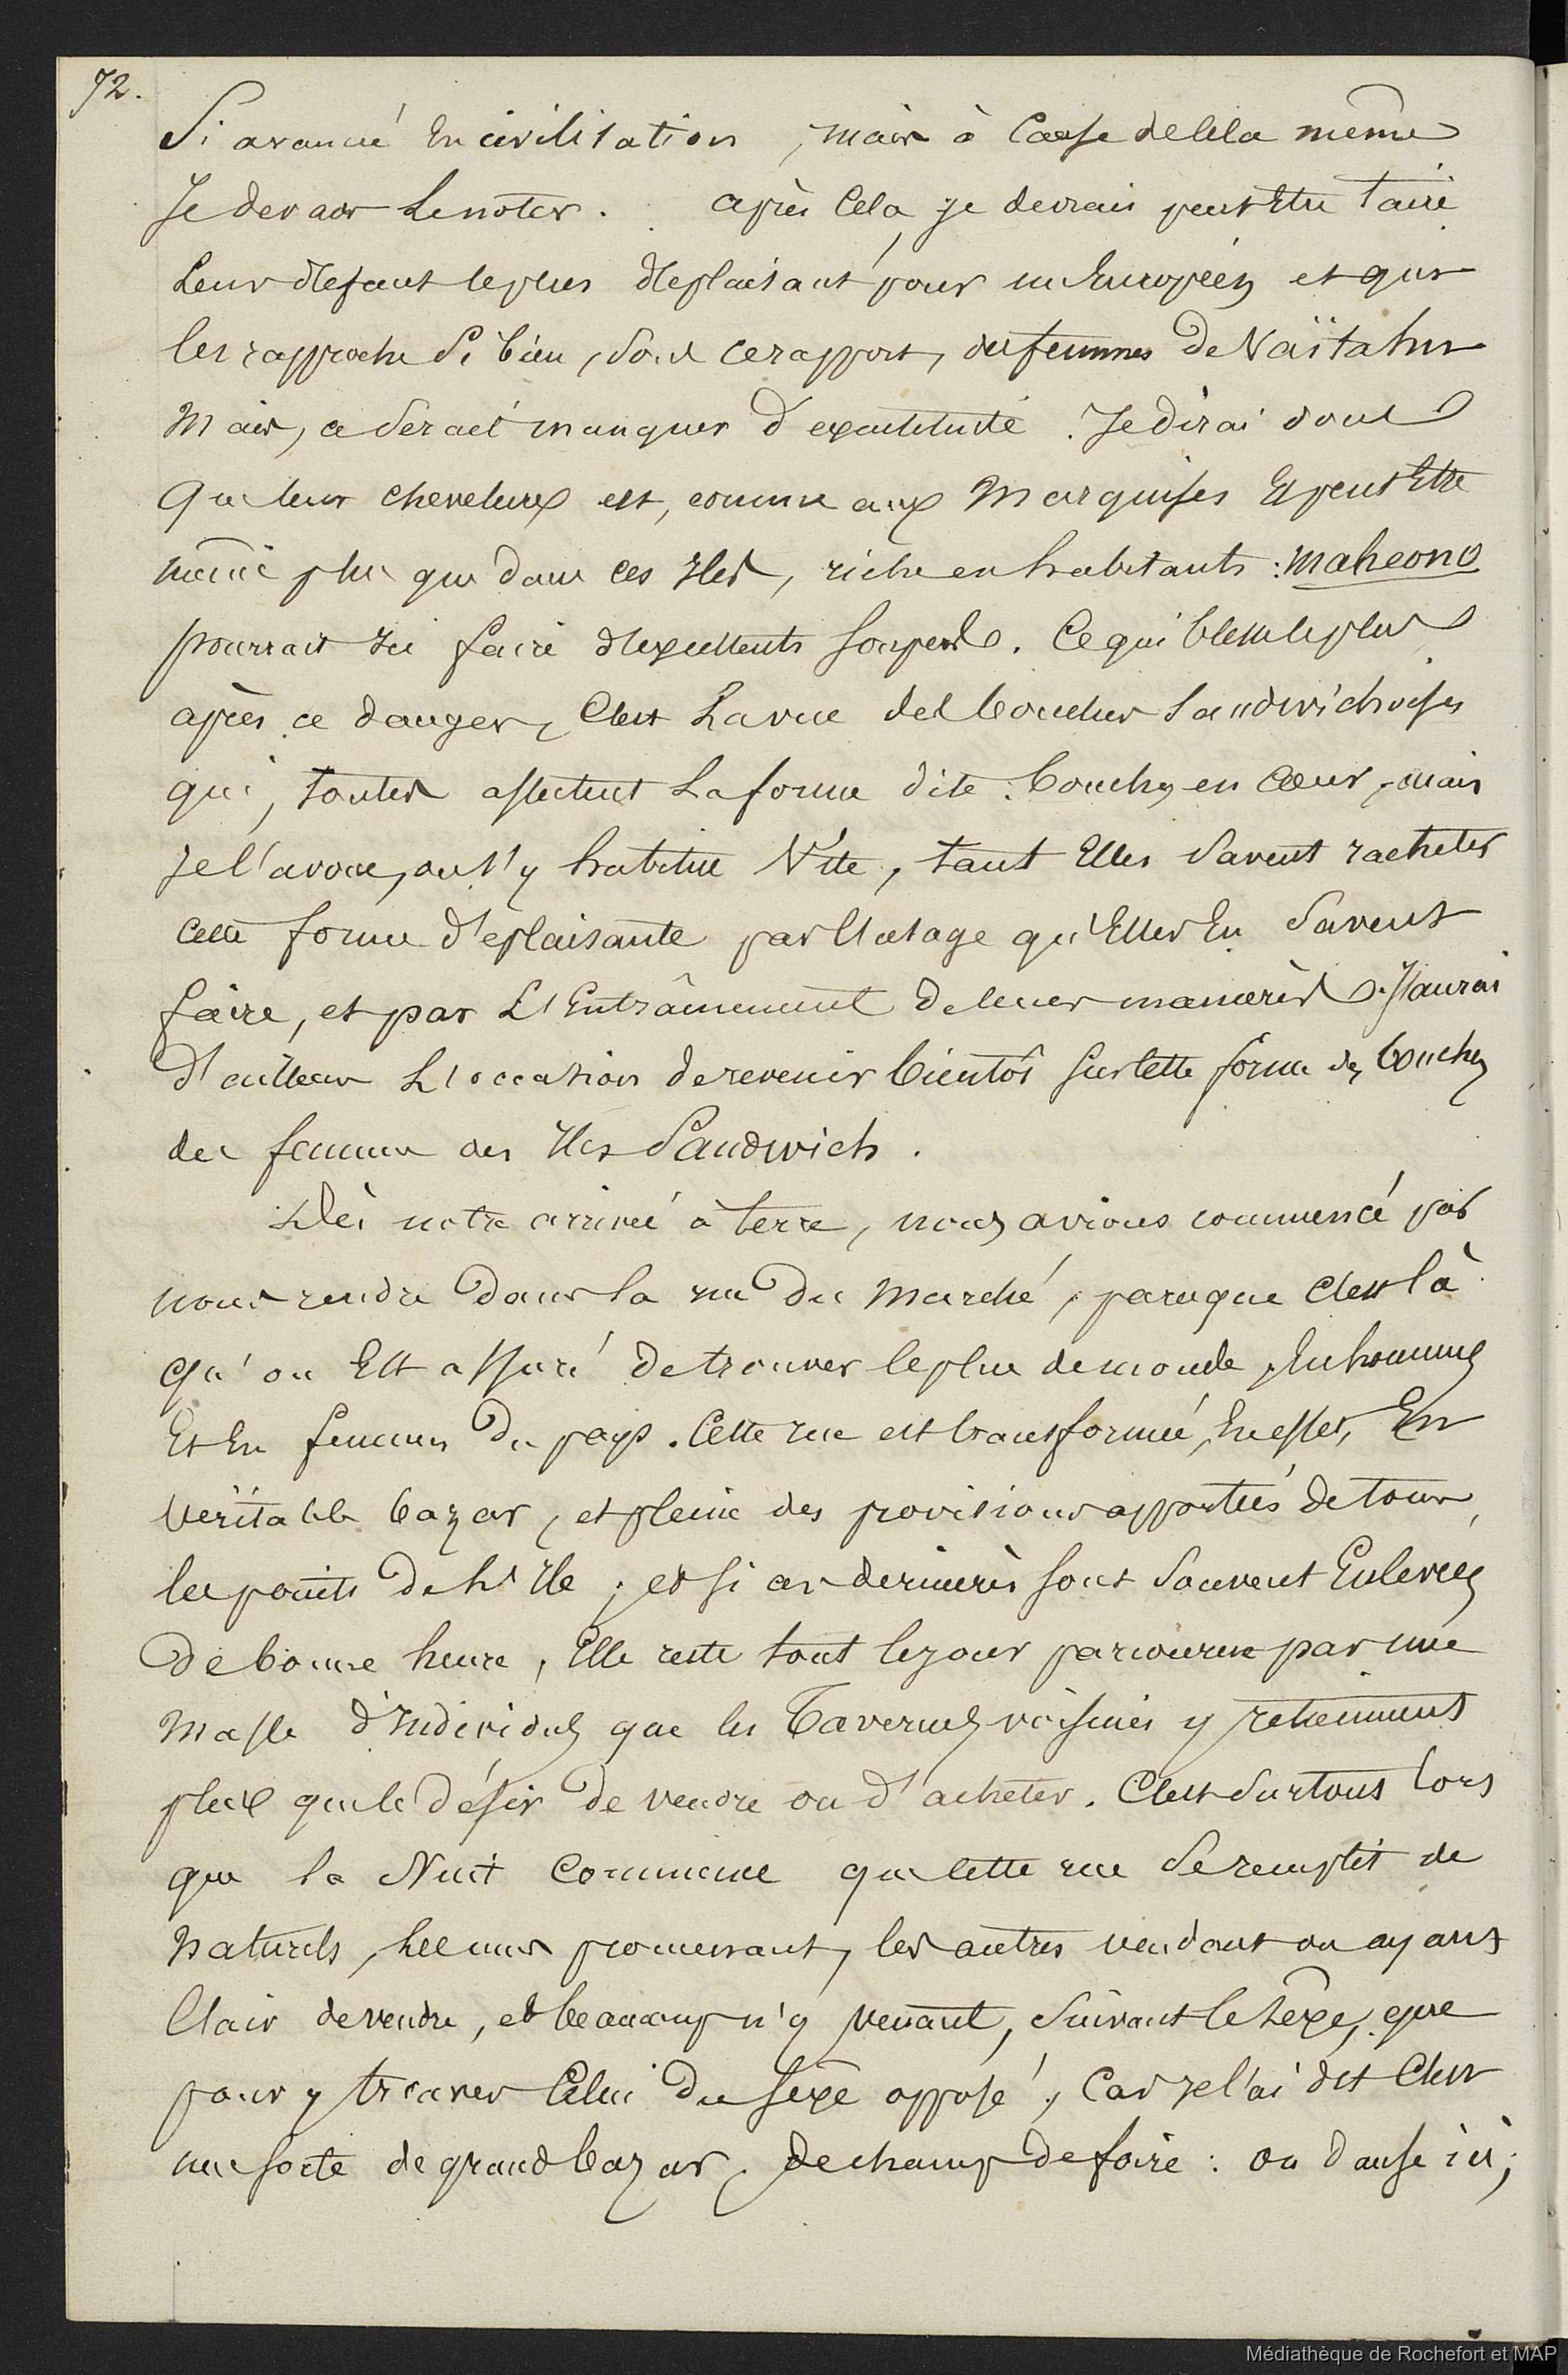 72.
Si avancé en civilisation, mais à cause de cela même
Je devais le noter. après cela, je devrais peut être taire
Leur défaut le plus déplaisant pour un Européen et qui
les rapproche si bien, sous ce rapport, des femmes de Naïtahu
Mais, ce serait manquer d'exactitude. Je dirai donc
Que leur chevelure est, comme aux Marquises Et peut Etre
même plus que dans ces Iles, riche en habitants : Maheono
pourrait ici faire d'excellents soupers. Ce qui blesse le plus
après ce danger, C'est La vue des bouches Sandwichoises
qui, toutes affectent La forme dite bouche en Cœur, mais
Je l'avoue, on s'y habitue Vite, tant Elles savent racheter
cette forme déplaisante par l'usage qu'Elles En savent
faire, et par L'Entraînement de leurs manières. J'aurai
d'ailleurs L'occasion de revenir bientôt sur cette forme de bouche
des femmes des Iles Sandwich.
Dès notre arrivée à terre, nous avions commencé par
nous rendre dans la rue du Marché, parceque C'est là
qu'on Est assuré de trouver le plus de monde, En hommes
Et En femmes du pays. Cette rue est transformée, En effet, En
Véritable bazar, et pleine des provisions apportées de tous
les points de L'Ile ; et si ces dernières sont souvent Enlevées
de bonne heure, Elle reste tout le jour parcourue par une
Masse d'Individus que les Tavernes voisines y retiennent
plus que le désir de vendre ou d'acheter. C'est surtout lors
que la Nuit commence que cette rue se remplit de
Naturels, les uns promenant, les autres vendant ou ayant
L'air de vendre, et beaucoup n'y venant, suivant le sexe, que
pour y trouver Celui du sexe opposé, Car je l'ai dit C'est
une sorte de grand bazar, de champ de foire : on danse ici ;
Médiathèque de Rochefort et MAP